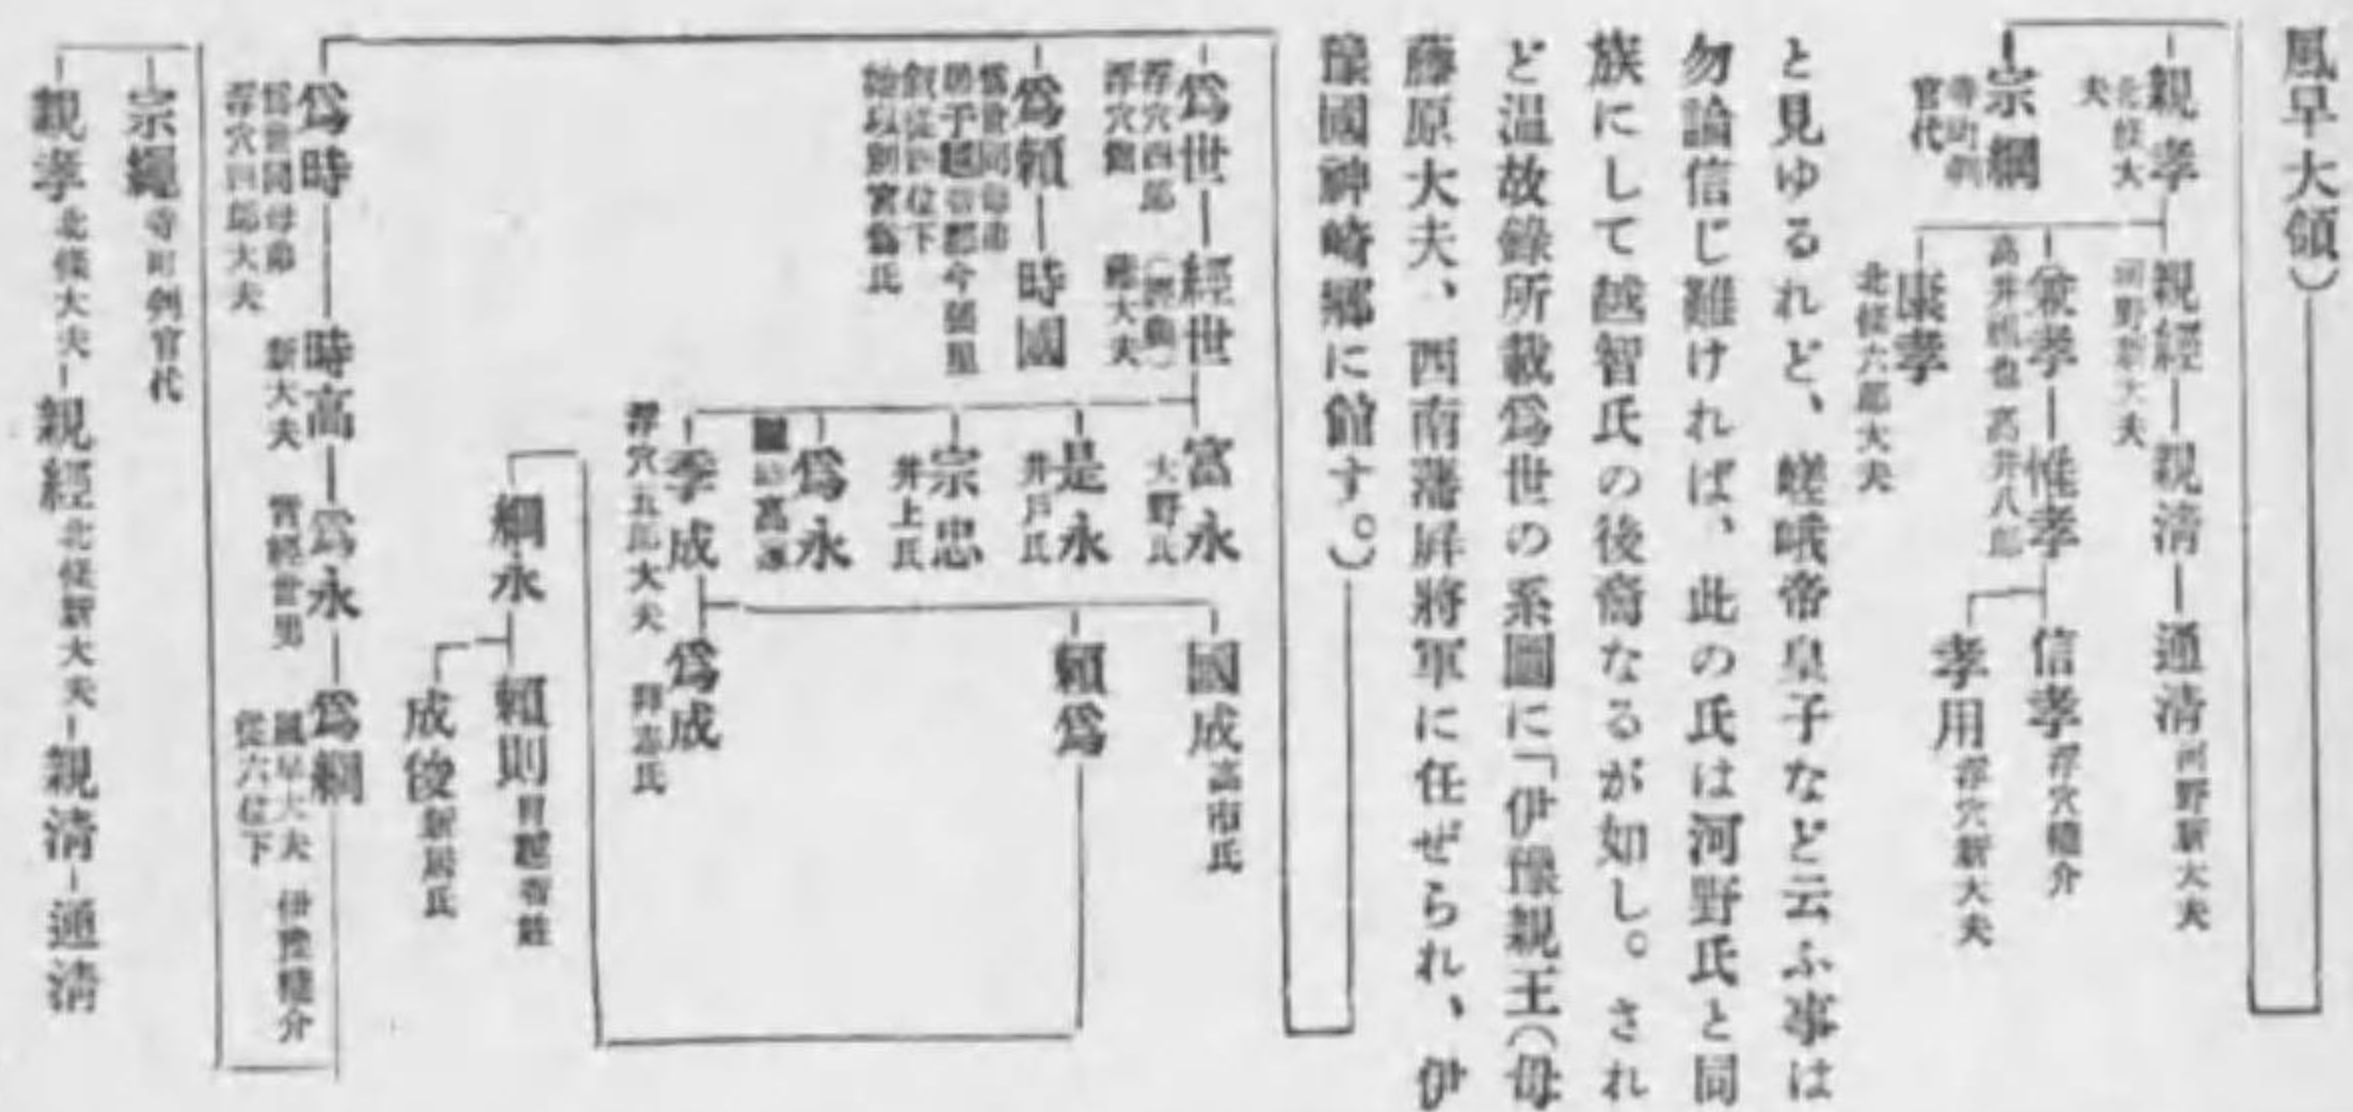 風早大領)
親孝
北條大
夫
親經
河野新大夫
親清
通清 河野新大夫
宗綱
寺町判
官代
兼孝
高井祖也 高井八郎
惟孝
信孝 浮穴權介
孝用 浮穴新大夫
康孝
北條六郎大夫
と見ゆるれど、嵯峨帝皇子など云ふ事は
勿論信じ難ければ、此の氏は河野氏と同
族にして越智氏の後裔なるが如し。され
ど温故錄所載爲世の系圖に「伊豫親王(母
藤原大夫、西南藩屛將軍に任ぜられ、伊
豫國神崎郷に館す。)
爲世
浮穴四郎
浮穴館
經世
藤大夫
富永
大野氏
是永
井戸氏
宗忠
井上氏
爲永
季成
浮穴五郎大夫
國成 高市氏
頼爲
爲成
拜志氏
綱永
頼則 冒越智姓
成後 新居氏
爲頼
爲世同母弟
時國
爲時
爲世同母弟
浮穴四郎大夫
時高
新大夫
爲永
實經世男
爲綱
風早大夫 伊豫權介
從六位下
宗繩 寺町判官代
親孝 北條大夫
親經 北條新大夫
親清
通清